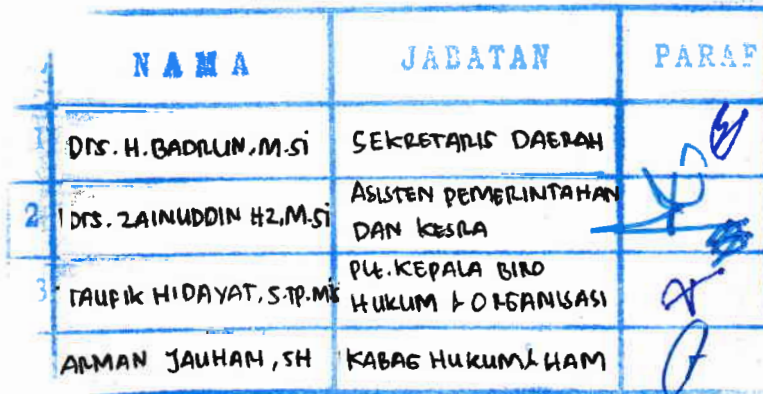 NAMA JABATAN PARAF
1 Drs. H. BADRUN, M.Si SEKRETARIS DAERAH
2 Drs. ZAINUDDIN HZ, M.Si ASISTEN PEMERINTAHAN
DAN KESRA
3 TAUFIK HIDAYAT, S.TP. M.Si PLt. KEPALA BIRO
HUKUM & ORGANISASI
ARMAN JAUHARI, SH KABAG HUKUM & HAM